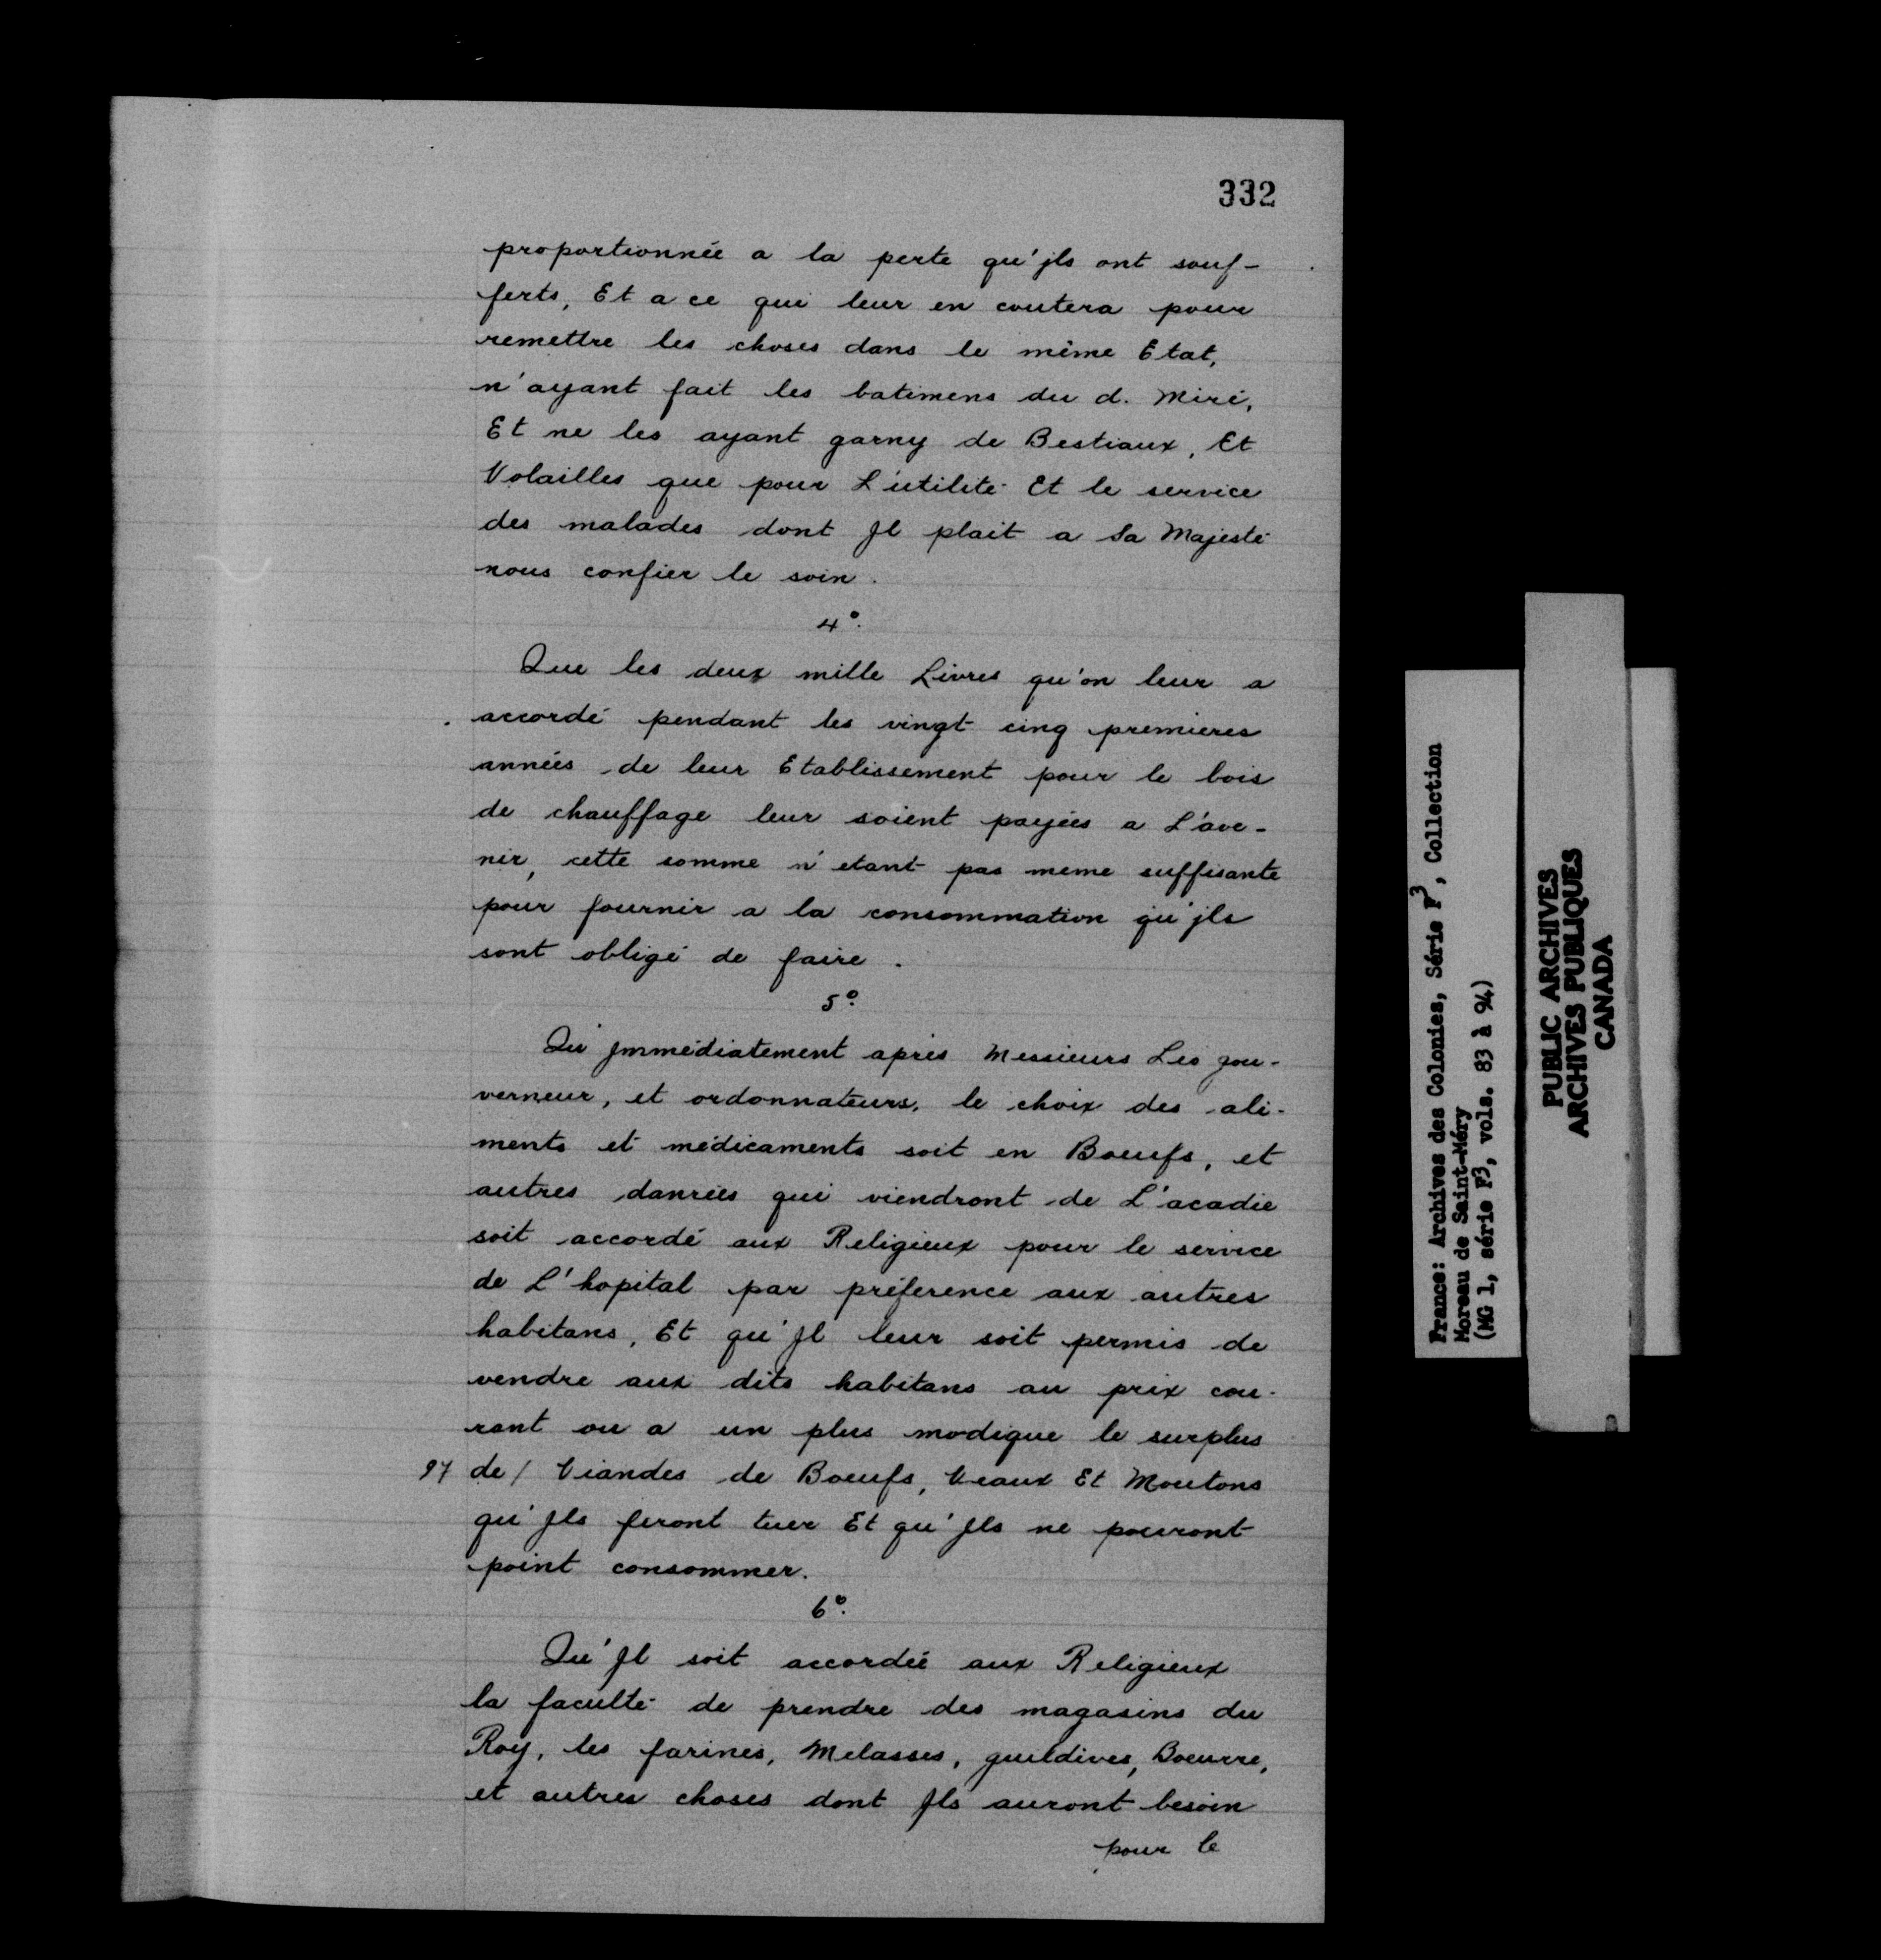 332
proportionnée a la perte qu'jls ont souf-
ferts, Et a ce qui leur en coutera pour
remettre les choses dans le même Etat,
n'ayant fait les batimens du d. Miré,
Et ne les ayant garny de Bestiaux, Et
Volailles que pour L'utilité Et le service
des malades dont Jl plait a Sa Majesté
nous confier le soin.
4°.
Que les deux mille Livres qu'on leur a
accordé pendant les vingt cinq premieres
années de leur Etablissement pour le bois
de chauffage leur soient payées a L'ave-
nir, cette somme n'etant pas meme suffisante
pour fournir a la consommation qu'jls
sont obligé de faire.
5°.
Qu'Jmmédiatement après Messieurs Les gou-
verneur, et ordonnateurs, le choix des ali-
ments et médicaments soit en Boeufs, et
autres danrées qui viendront de L'acadie
soit accordé aux Religieux pour le service
de L'hopital par préference aux autres
habitans, Et qu'Jl leur soit permis de
vendre aux dits habitans au prix cou-
rant ou a un plus modique le surplus
97 de / Viandes de Boeufs, Veaux Et Moutons
qu'Jls feront tuer Et qu'Jls ne pouront
point consommer.
6°.
Qu'Jl soit accordée aux Religieux
la faculté de prendre des magasins du
Roy, les farines, Melasses, guildives, Boeurre,
et autres choses dont Jls auront besoin
pour le
France: Archives des Colonies, Série F3, Collection
Moreau de Saint-Méry
(MG 1, série F3, vols. 83 à 94)
PUBLIC ARCHIVES
ARCHIVES PUBLIQUES
CANADA